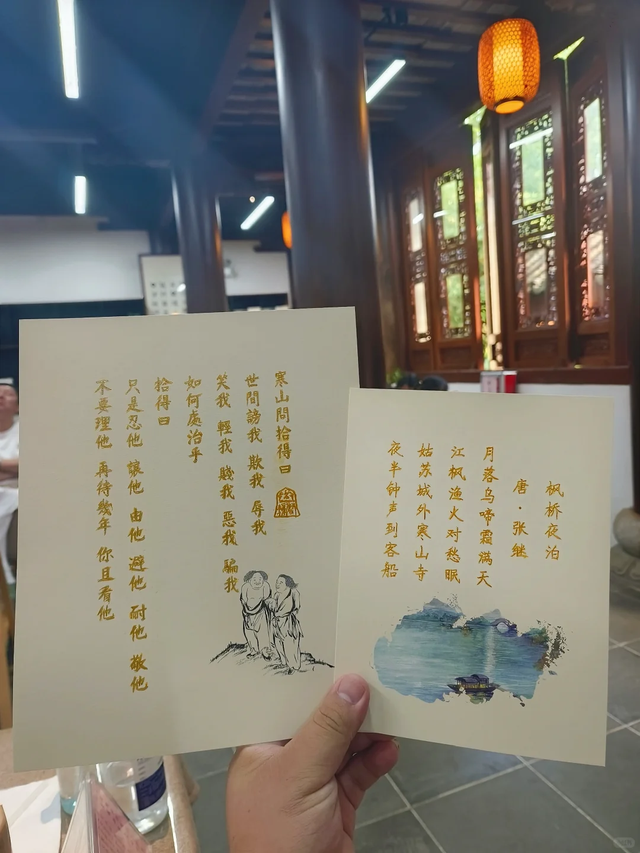 寒山問拾得曰
世間謗我 欺我 辱我
笑我 輕我 賤我 惡我 騙我
如何處治乎
拾得曰
只是忍他 讓他 由他 避他 耐他 敬他
不要理他 再待幾年 你且看他
枫桥夜泊
唐·张继
月落乌啼霜满天
江枫渔火对愁眠
姑苏城外寒山寺
夜半钟声到客船